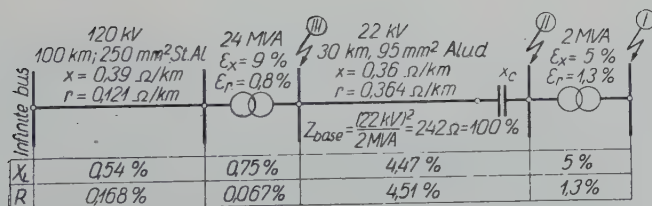 Infinite bus
120 kV
100 km; 250 mm² St.Al
x = 0,39 Ω/km
r = 0,121 Ω/km
24 MVA
εx = 9 %
εr = 0,8%
III
22 kV
30 km, 95 mm² Alud
x = 0,36 Ω/km
r = 0,364 Ω/km
xc
Zbase = (22 kV)² / 2 MVA = 242 Ω = 100 %
II
2 MVA
εx = 5 %
εr = 1,3 %
I
XL 0,54 % 0,75 % 4,47 % 5 %
R 0,168 % 0,067% 4,51 % 1,3 %